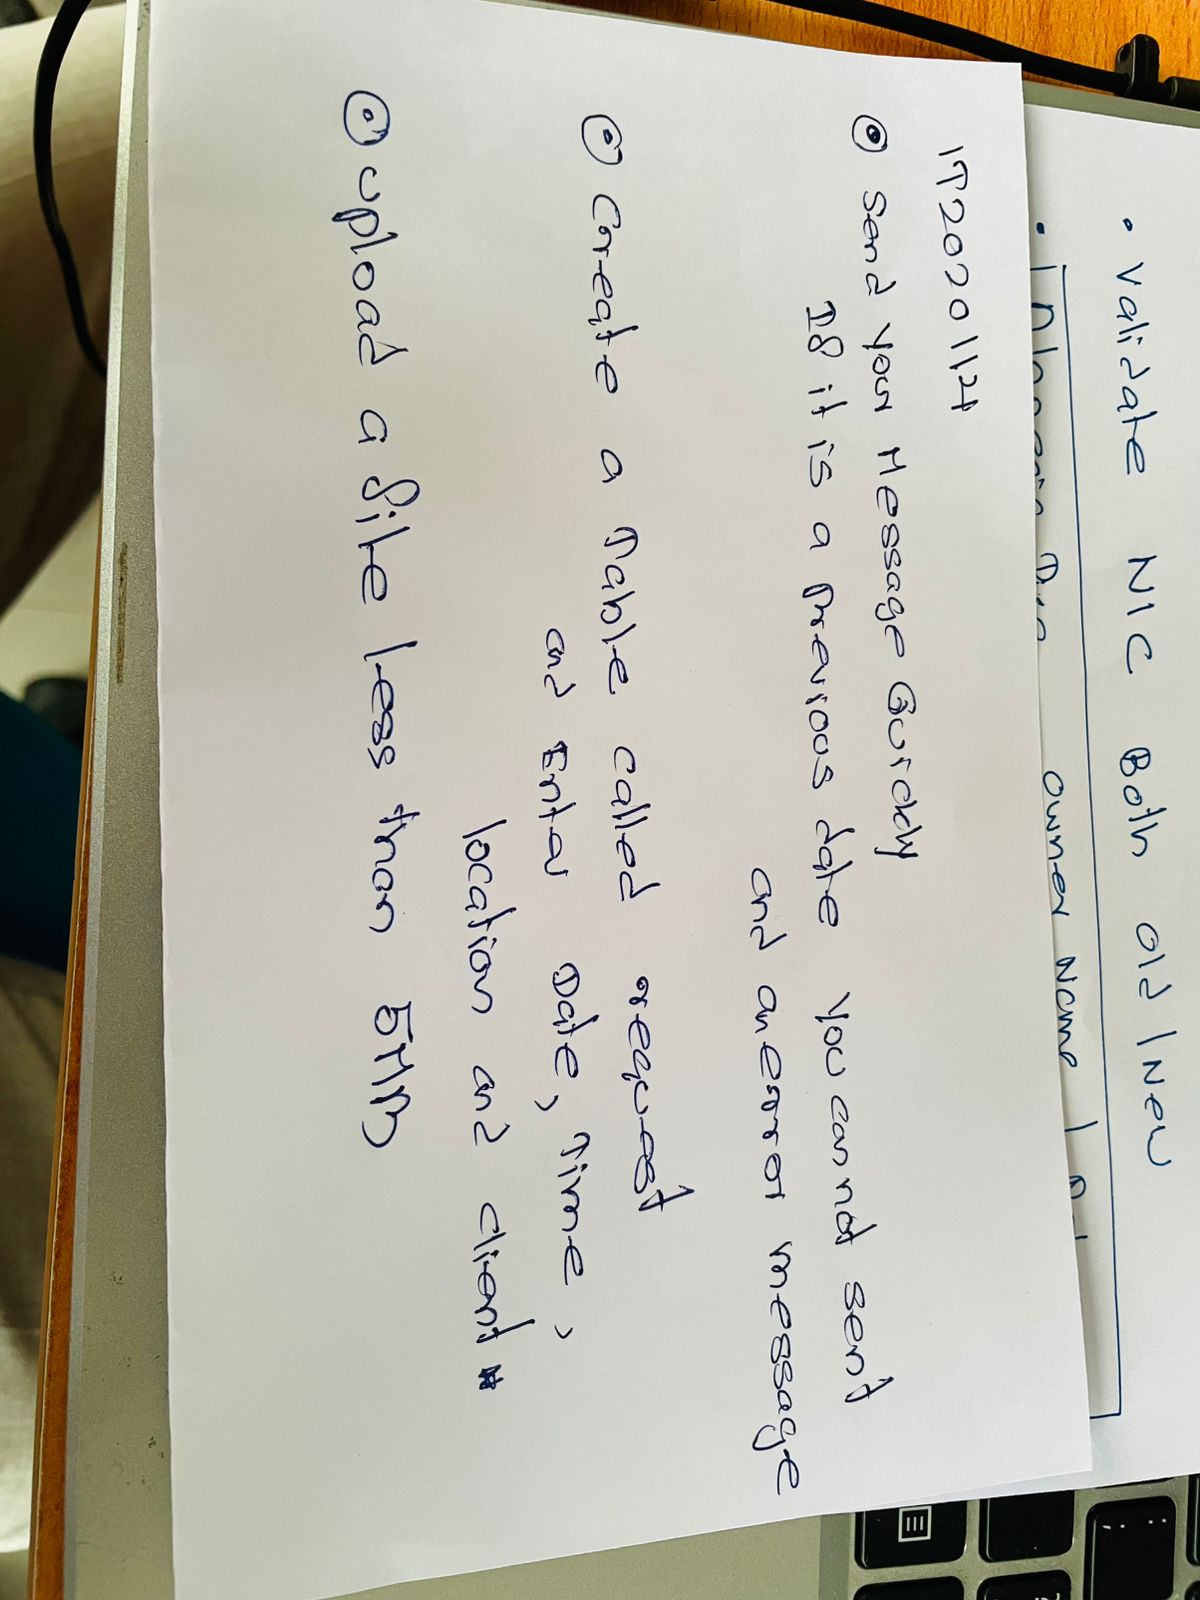 • Validate NIC Both Old / New
• Owner Name |
IT20201124
Send your Message Quickly
If it is a previous date you can not sent
and an error message
Create a Table called request
and Enter Date, Time,
location and client
Upload a file less than 5MB